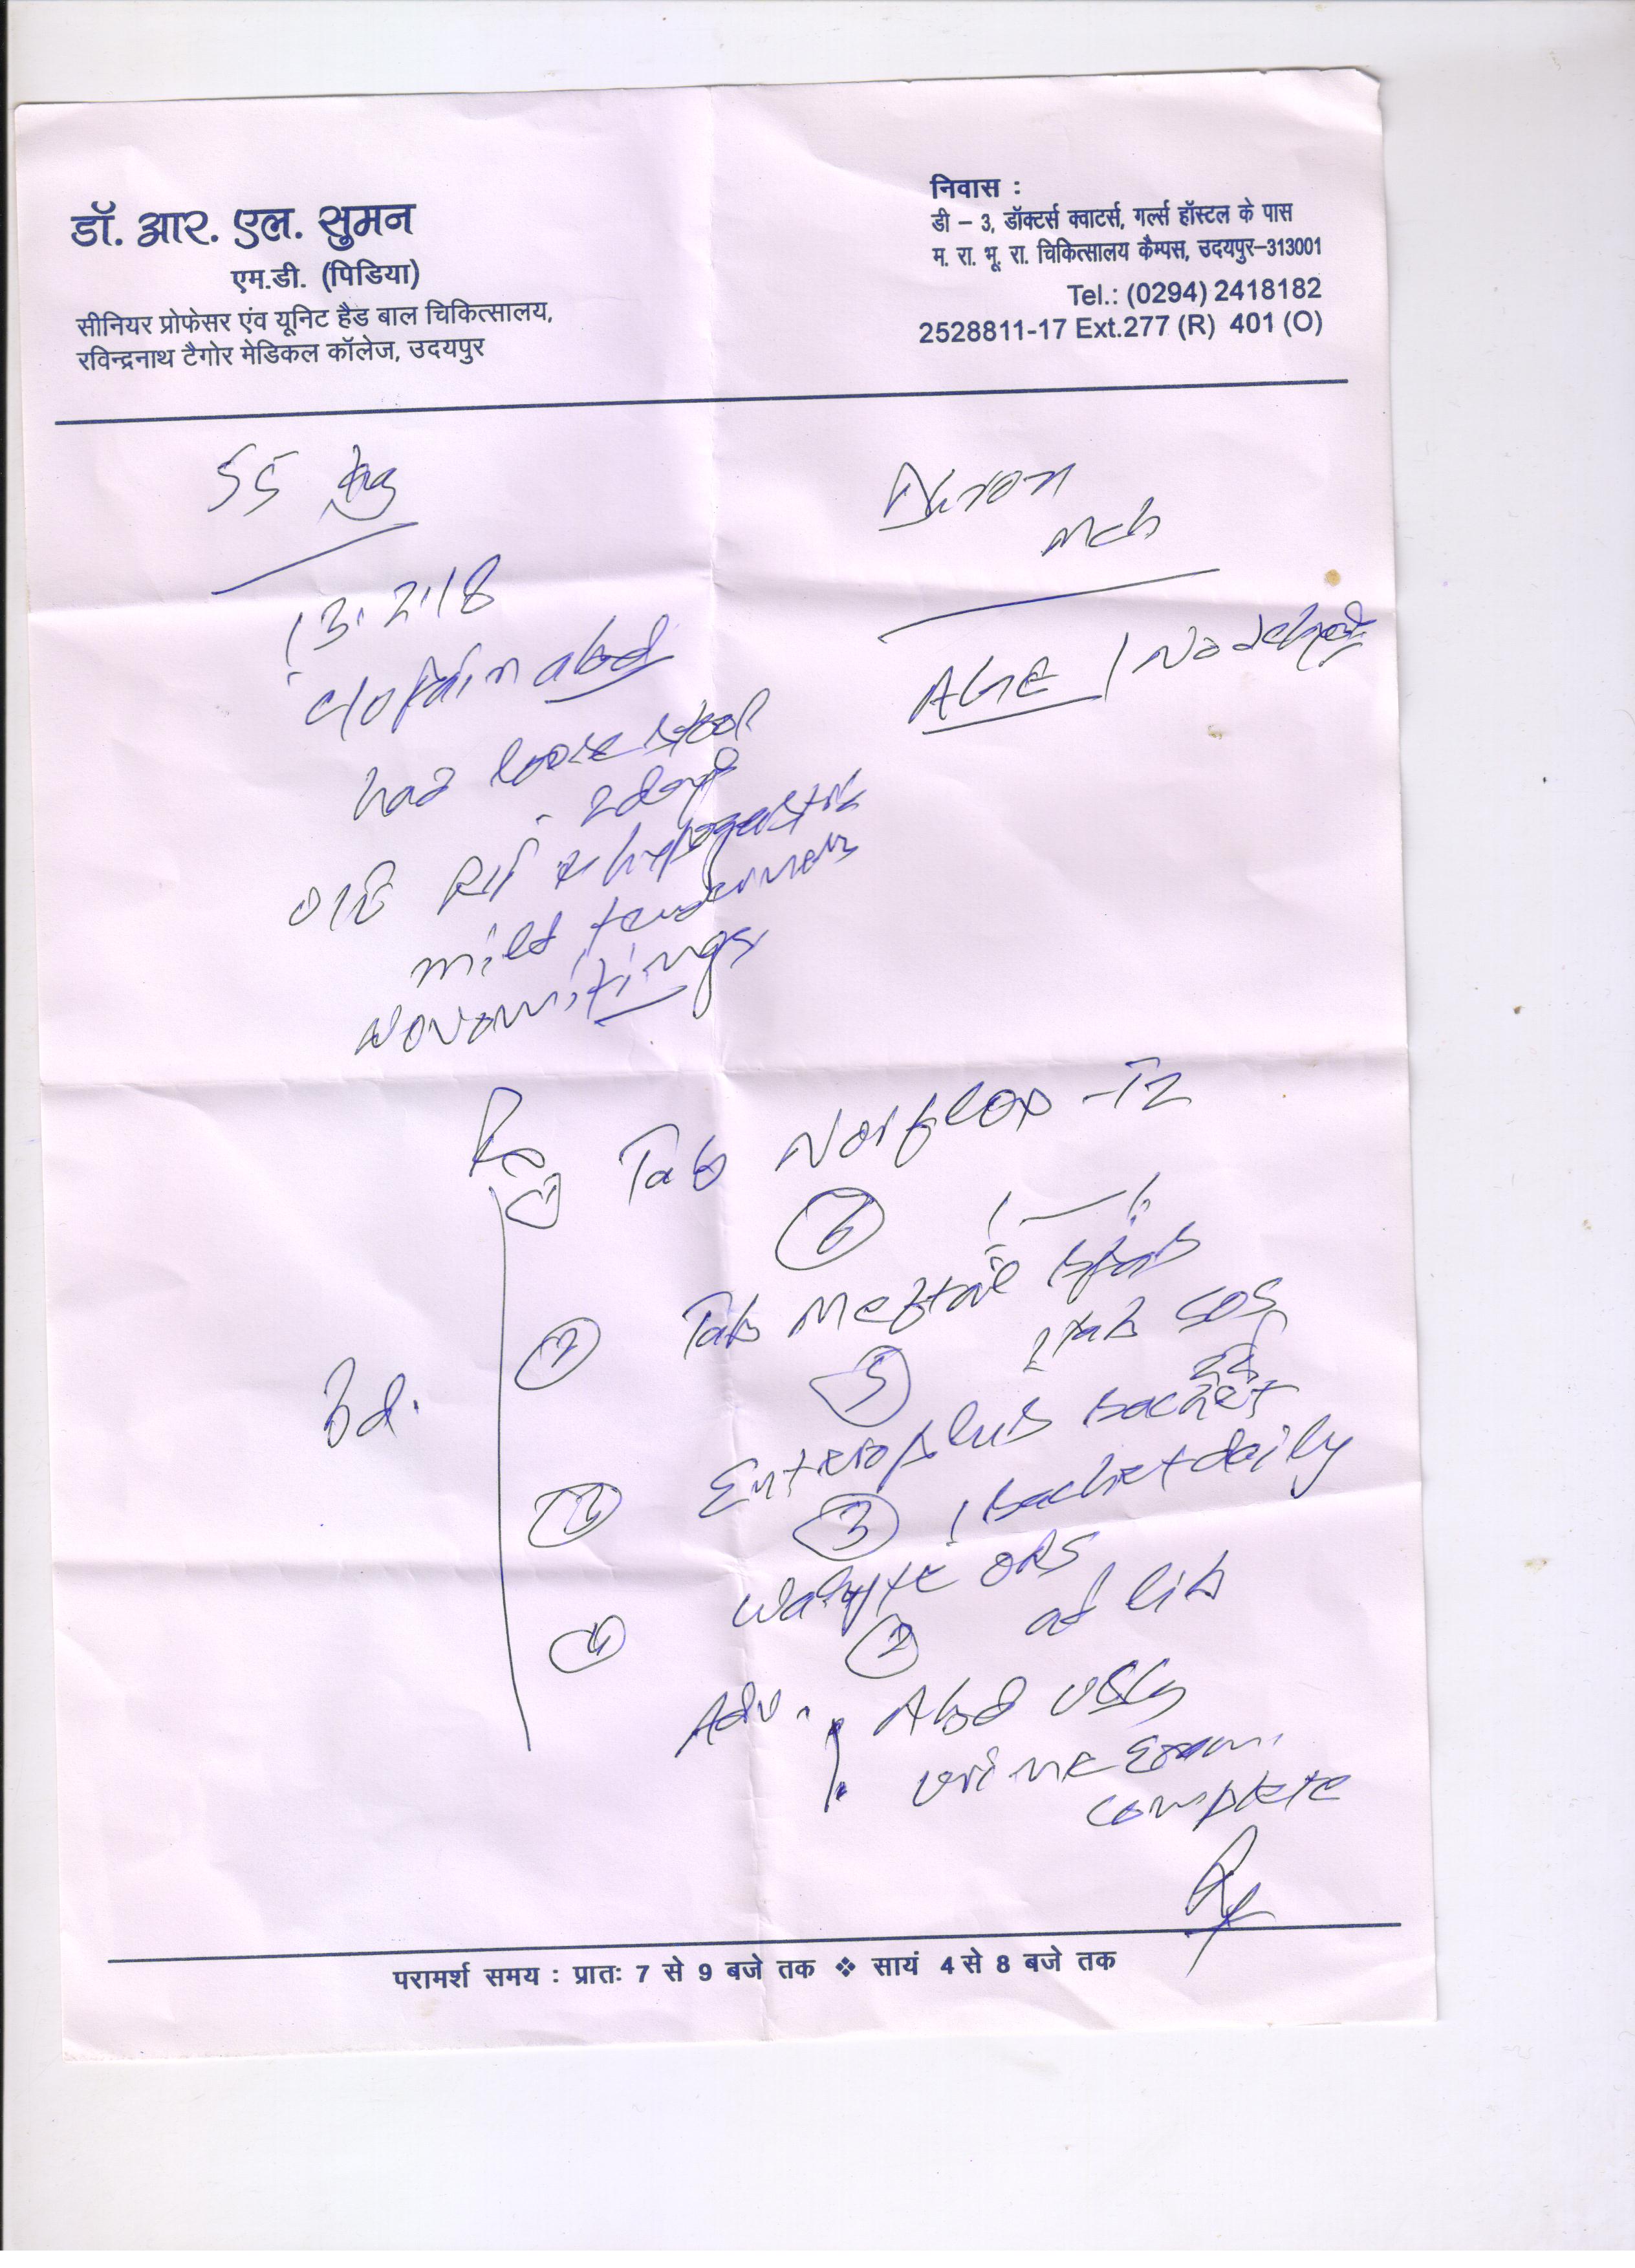 डॉ. आर. एल. सुमन
एम.डी. (पिडिया)
सीनियर प्रोफेसर एंव यूनिट हैड बाल चिकित्सालय,
रविन्द्रनाथ टैगोर मेडिकल कॉलेज, उदयपुर
निवास :
डी – 3, डॉक्टर्स क्वाटर्स, गर्ल्स हॉस्टल के पास
म. रा. भू. रा. चिकित्सालय कैम्पस, उदयपुर–313001
Tel.: (0294) 2418182
2528811-17 Ext.277 (R) 401 (O)
55 kg
mch
13.2.18
AGE / No dehy
c/o Pain abd
had loose stool
- 2 days
O/E RIF & hypogastric
mild tenderness
No vomitings
Rx
① Tab Norflox-TZ
⑥ 1 — 1
② Tab Meftal spas
⑤ 1 tab SOS
3d.
③ Enteroplus sachet
③ 1 sachet daily
④ Walyte ORS
② ad lib
Adv. Abd USG
urine Exam.
complete
परामर्श समय : प्रातः 7 से 9 बजे तक ❖ सायं 4 से 8 बजे तक